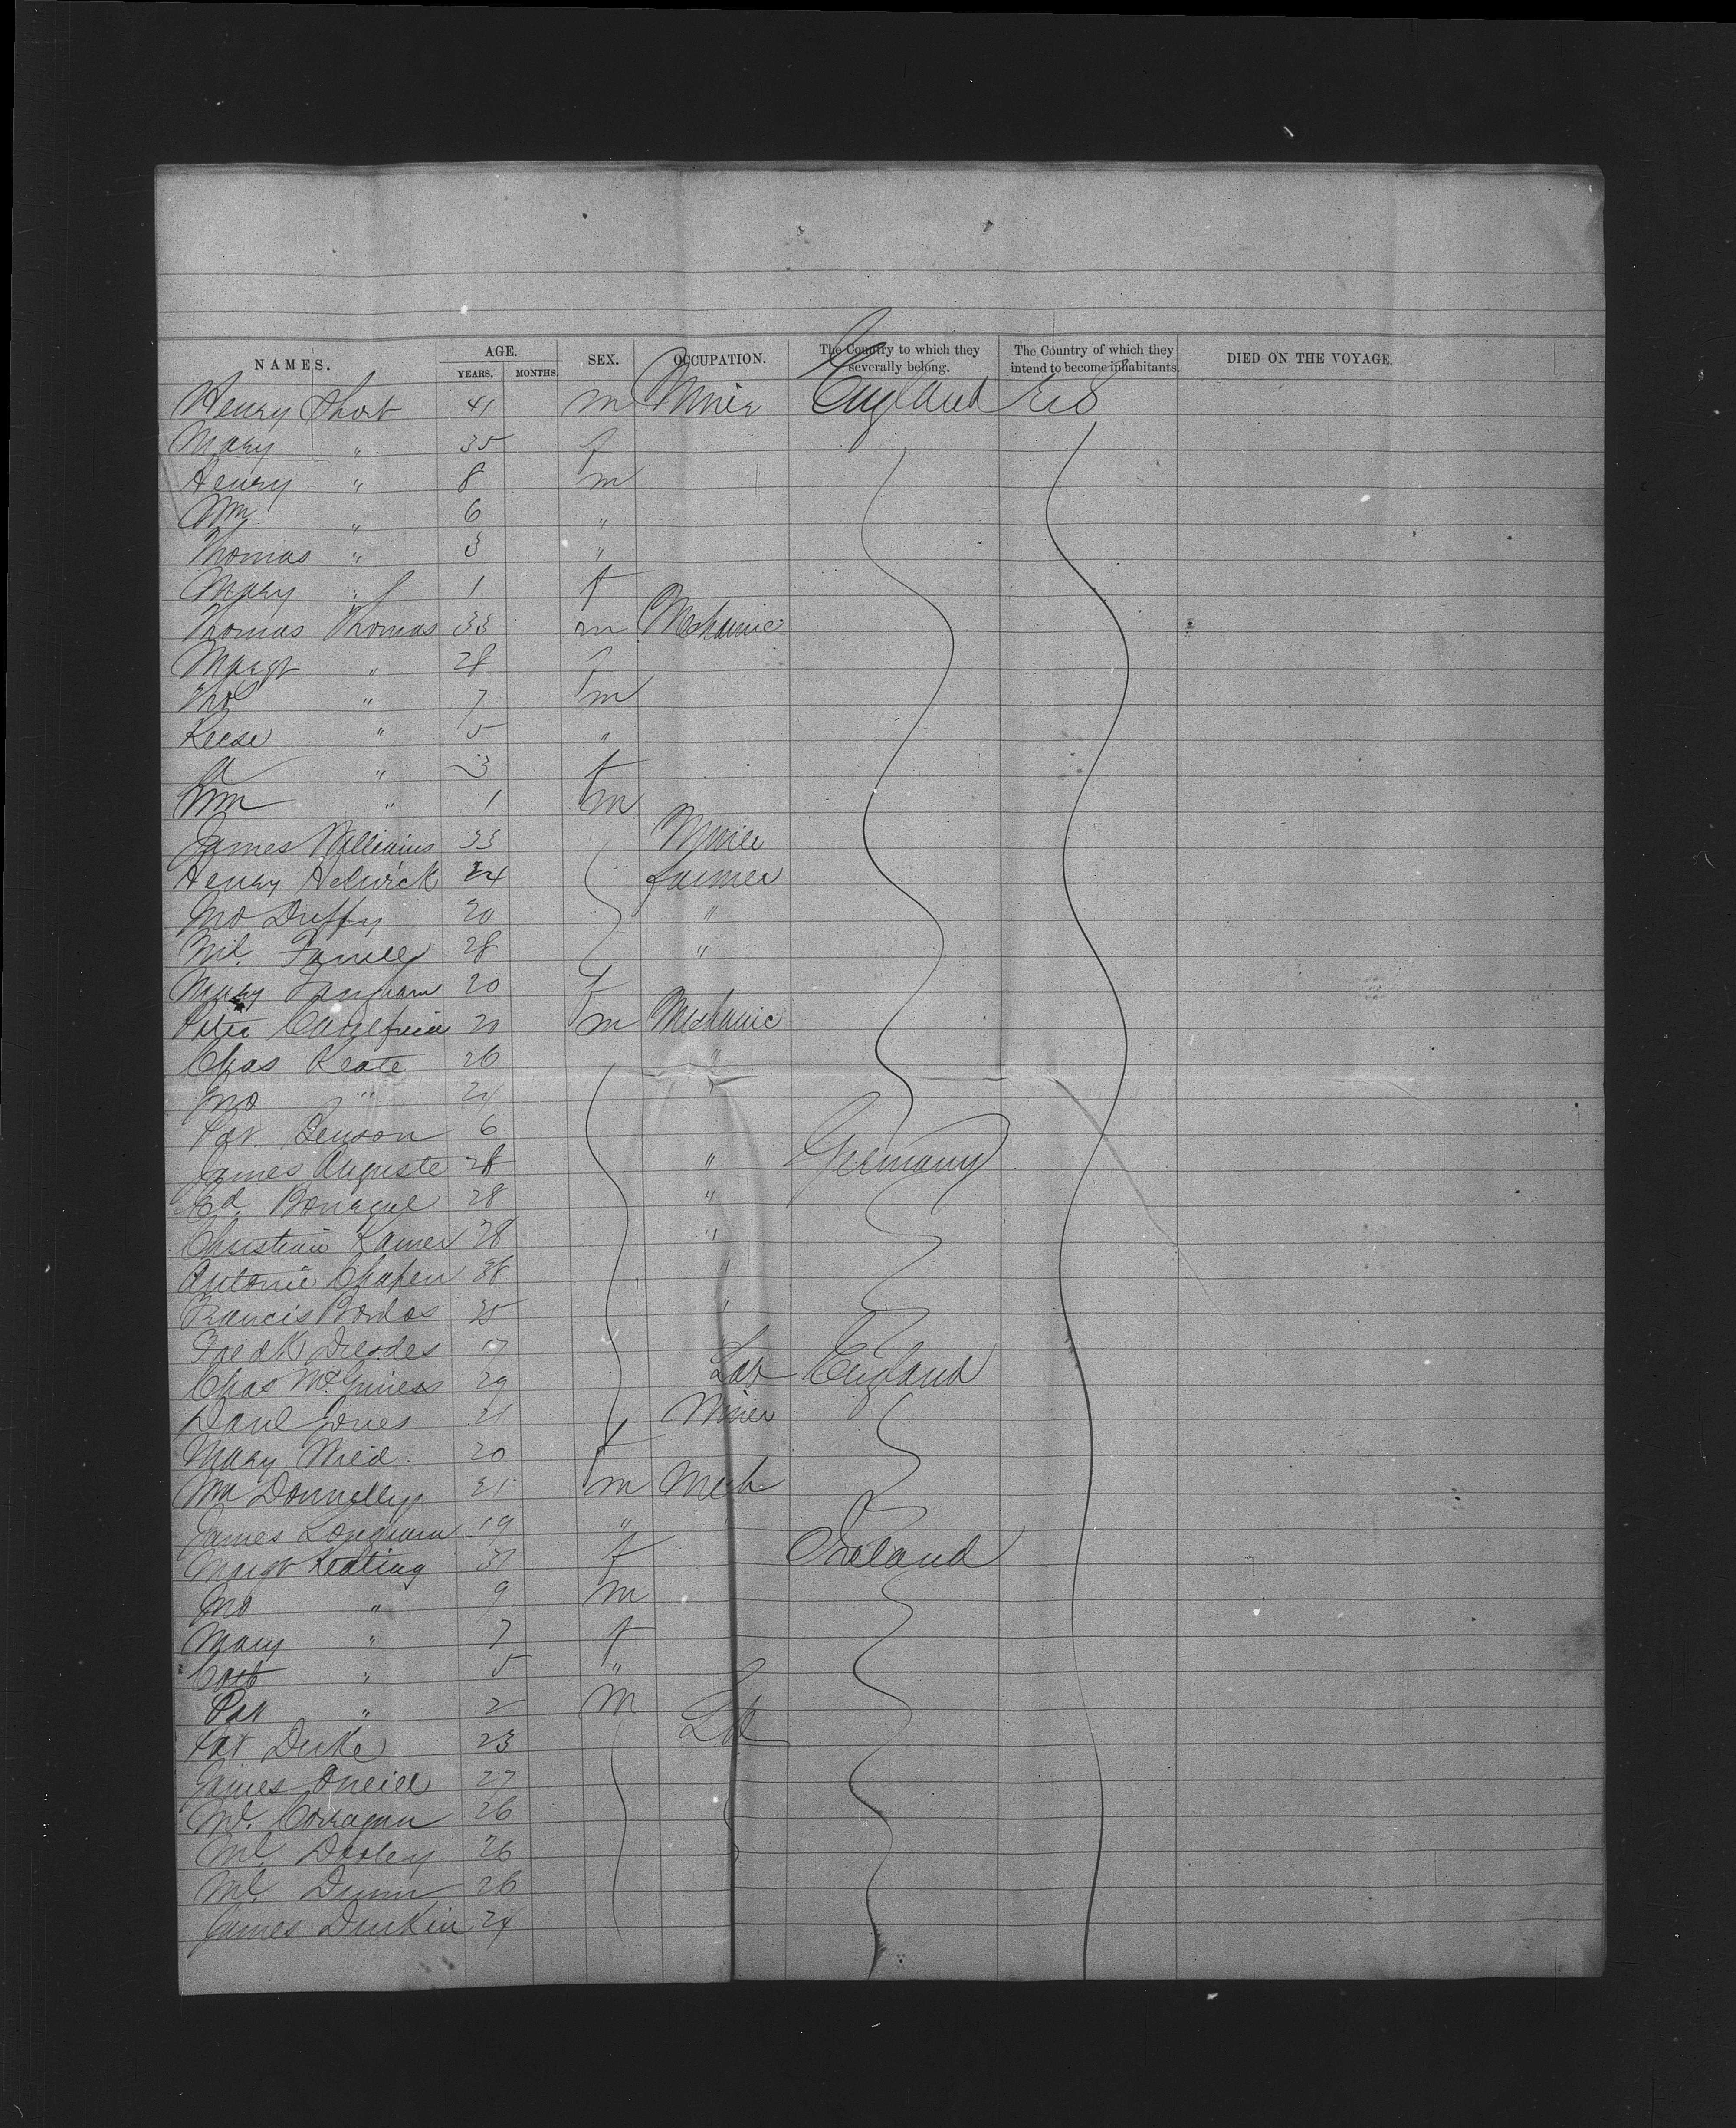 NAMES. AGE. YEARS. MONTHS. SEX. OCCUPATION. The Country to which they severally belong. The Country of which they intend to become inhabitants. DIED ON THE VOYAGE.
Henry Short 41 m Miner England US
Mary " 35 f
Henry " 8 m
Wm " 6 "
Thomas " 3 "
Mary " 1 f
Thomas Thomas 33 m Mechanic
Margt " 28 f
Tho " 7 m
Reese " 5 "
" 3 f
Wm " 1 m
James Williams 33 Miner
Henry Helwick 24 farmer
Jno Duffy 20 "
Mil. Farrell 28 "
Mary Langham 20 f
Peter 20 m Mechanic
Chas Keate 26 "
Jno " 24
Pat. Benson 6
James Auguste 28 " Germany
Ed. 28 "
Christian Kamer 28 "
Antonie Chapen 38 "
Francis Bordos 25 "
Fredk Dresdes
Chas McGuiness 29 Lab England
Danl Jones 21 Miner
Mary Wied 20 f
Wm Donnelly 21 m Mech
James Longham 19 "
Margt Keating 31 f Ireland
Jno " 9 m
Mary " 7 f
Cath " 5 "
Pat " 2 m
Pat Duke 23 Lab
James Oneill 27
Ml. Corragan 26
Ml. Dooley 26
Ml. Dunn 26
James Dunkin 24